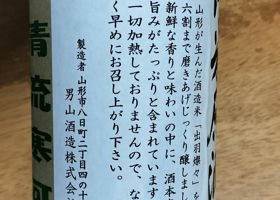 山形が生んだ酒造米「出羽燦々」を
六割まで磨きあげじっくり醸しまし
新鮮な香りと味わいの中に、酒本
旨みがたっぷりと含まれています
一切加熱しておりませんので、な
く早めにお召し上がり下さい。
製造者 山形市八日町二丁目四の十
男山酒造株式会
清流寒河